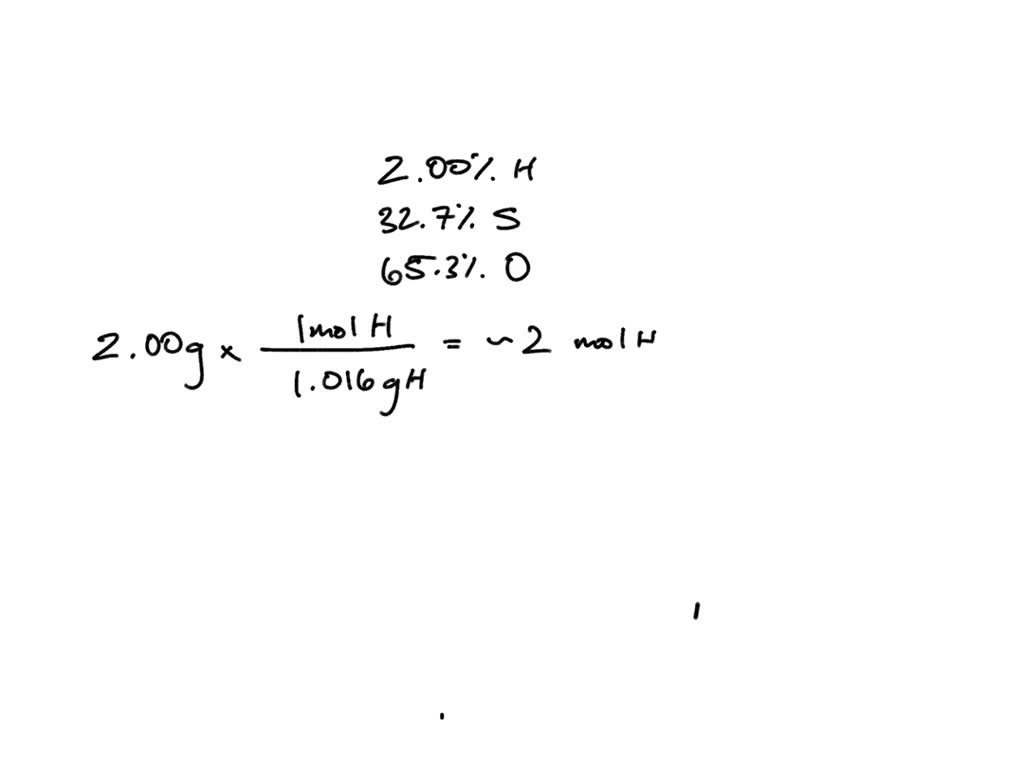 2.00% H
32.7% S
65.3% O
2.00g x 1mol H / 1.016gH = ~2 mol H